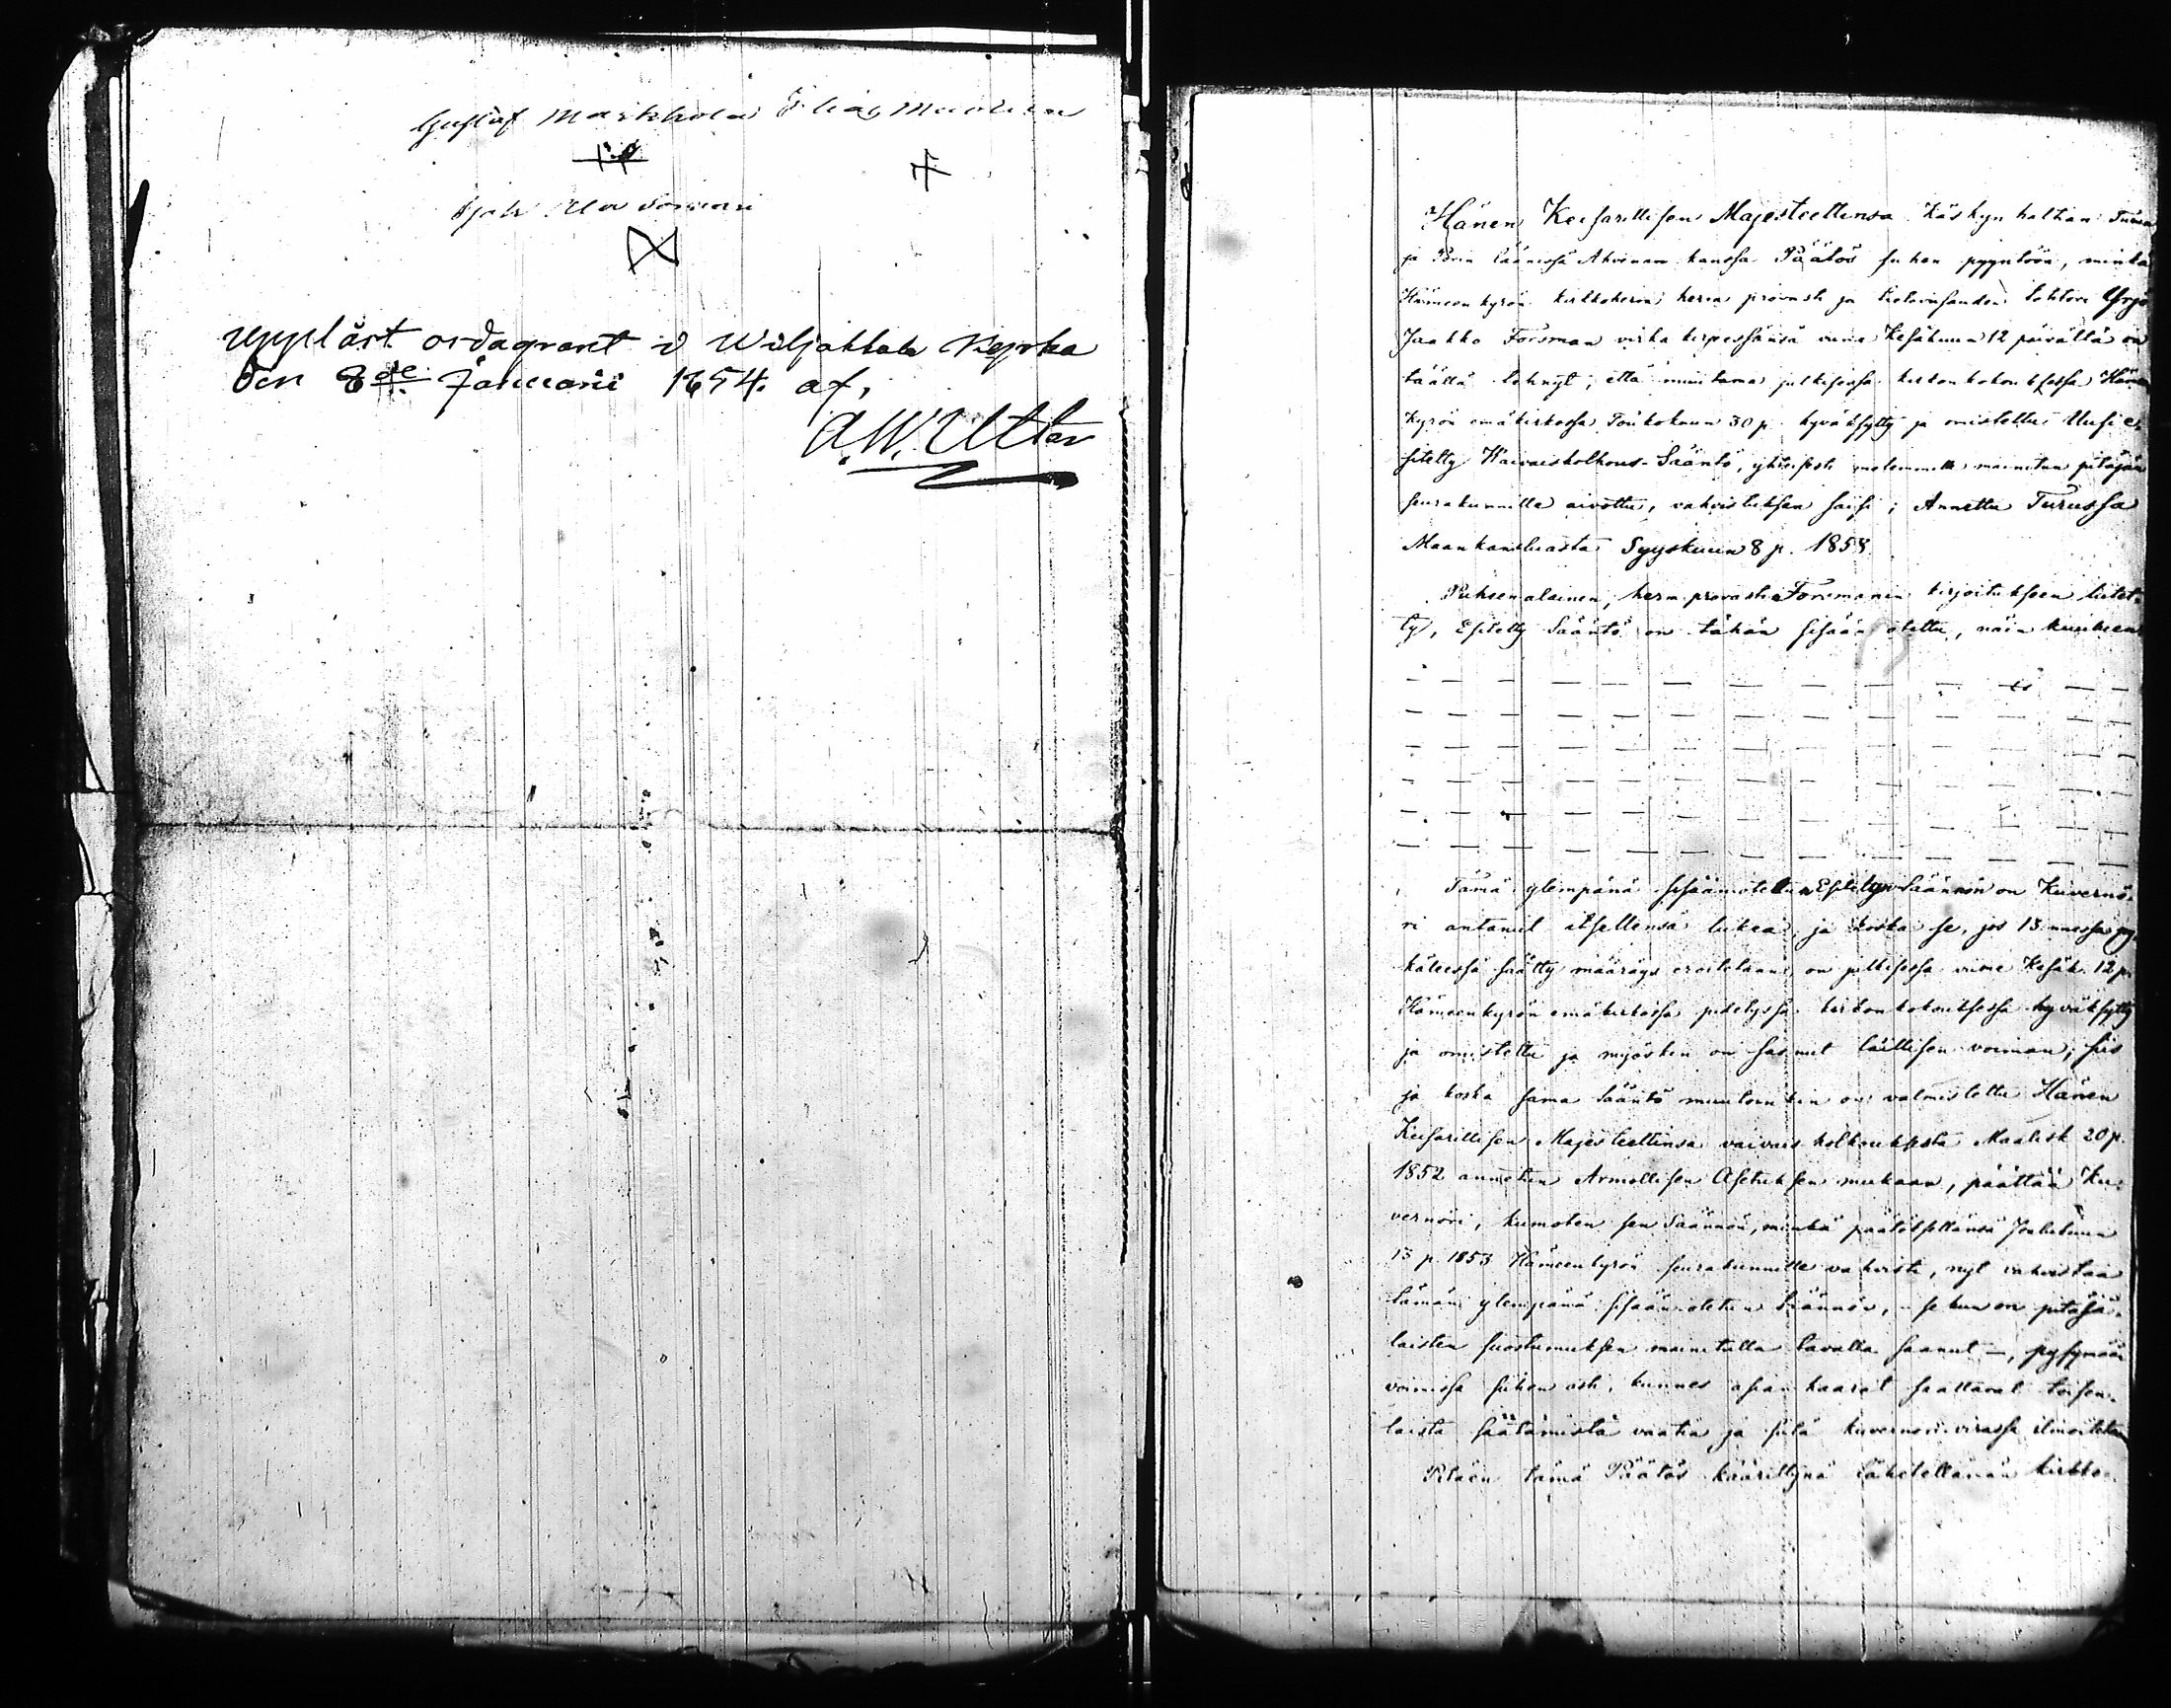 Gustaf Markkola Elias
Upplåst ordagrant i Wiljakkala Kyrka
den 8de Januarii 1854. af,
A.W. Utter
Hänen Keisarillisen Majesteettinsa Käskyn haltian Turun
ja Porin läänissä Ahvenan kanssa Päätös siihen pyyntöön, minkä
Hämeen kyrön kirkkoherra herra provasti ja tohtori Yrjö
Jaakko Forsman virka kirjessänsä viime Kesäkuun 12 päivältä on
täällä tehnyt, että muutama julkisessa kirkon kokouksessa Hämeen
kyrön emäkirkossa Toukokuun 30 p. hyväksytty ja omistettu Uusi e-
sitetty Waivaisholhous-Sääntö, yhteisesti molemmille mainitun pitäjän
seurakunnille aivottu, vahvistuksen saisi; Annettu Turussa
Maankansliasta Syyskuun 8 p. 1858.
herra provasti Forsmanin kirjoitukseen liitet-
ty, Esitetty Sääntö on tähän sisään otettu, näin kuuluen
Tämä ylempänä sisäänotetun Esitetyn Säännön on Kuvernö-
ri antanut itsellensä lukea, ja koska se, jos 13 nnessa py-
käleessä säätty määräys eroitetaan, on julkisessa viime Kesäk. 12 p.
Hämeenkyrön emäkirkossa pidetyssä kirkonkokouksessa hyväksytty
ja omistettu ja myöskin on saanut laillisen voiman; siis
ja koska sama Sääntö muutoinkin on valmistettu Hänen
Keisarillisen Majesteettinsa vaivaisholhouksesta Maalisk. 20 p.
1852 annetun Armollisen Asetuksen mukaan, päättää Ku-
vernöri, kumoten sen Säännön, minkä päätöksellänsä Joulukuun
13 p. 1853 Hämeenkyrön seurakunnille vahvisti, nyt vahvistaa
tämän ylempänä sisään otetun Säännön, se kun on pitäjä-
läisten suostumuksen mainitulla tavalla saanut –, pysymään
voimissa siihen asti, kunnes asian haarat saattavat toisen-
laista säätämistä vaatia ja siitä kuvernöri-virassa ilmoitetaan
Pitäen tämä Päätös käärittynä lähetettämän kirkko-